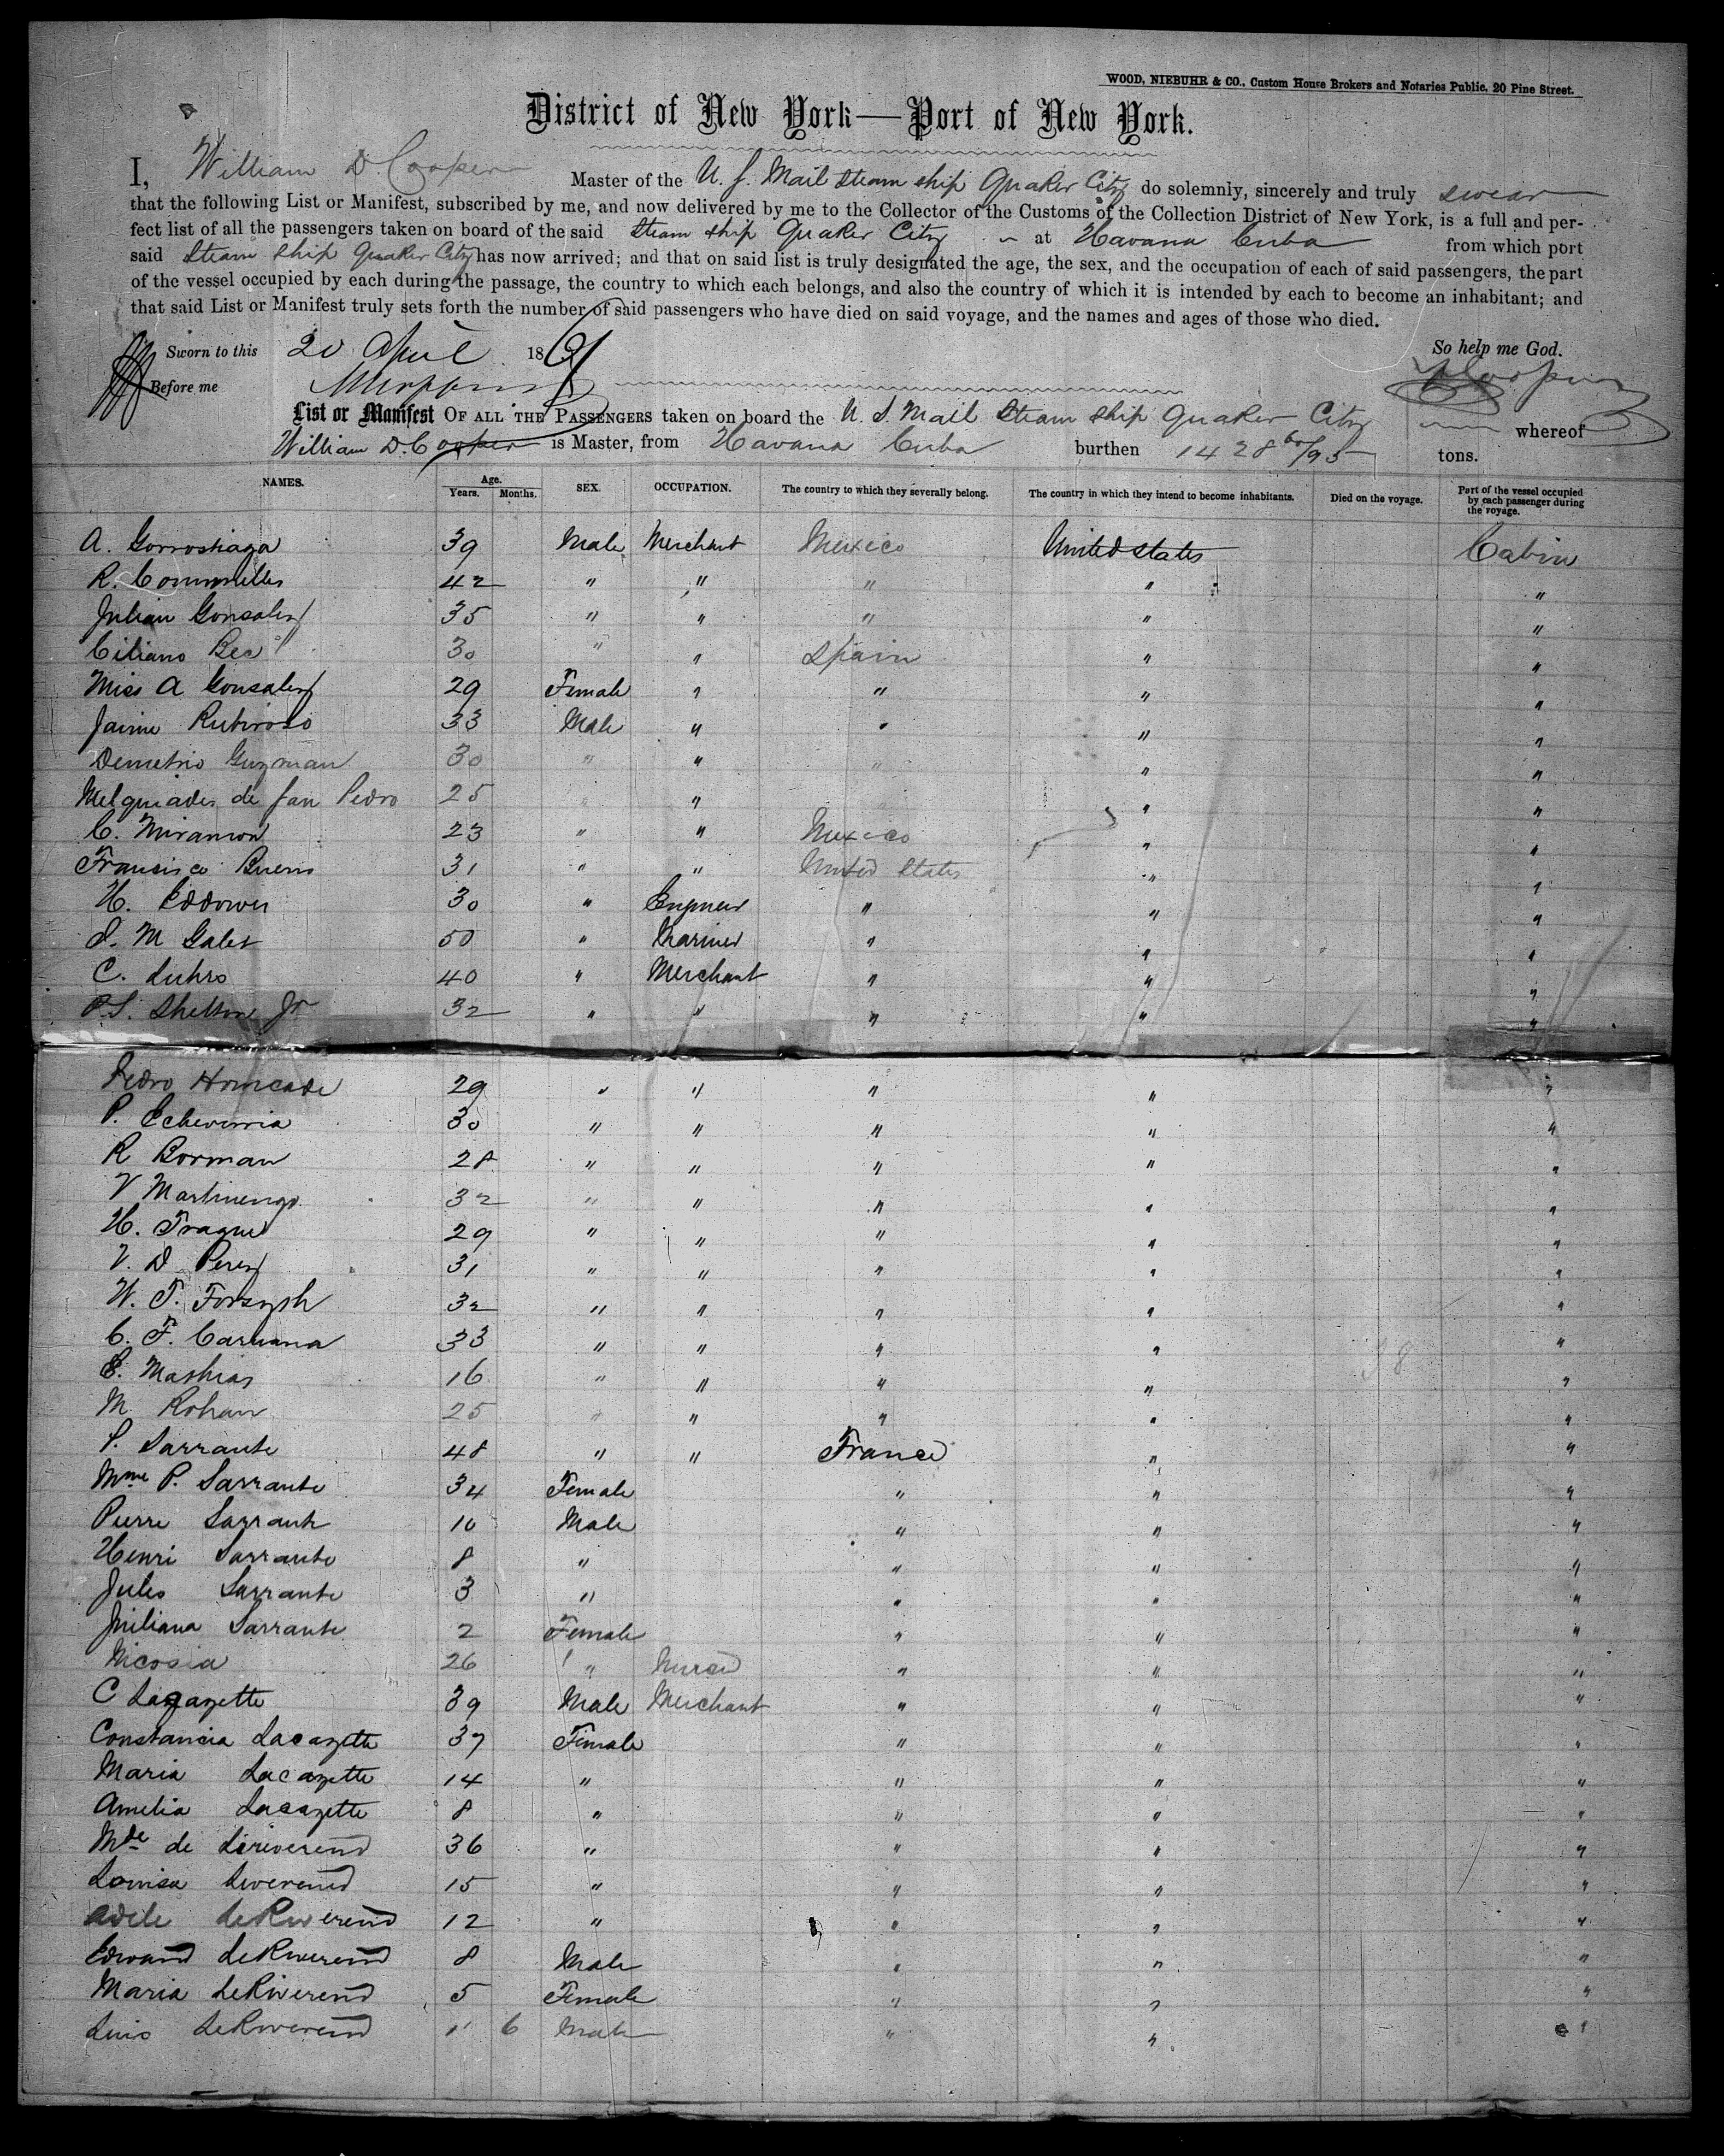 WOOD, NIEBUHR & CO., Custom House Brokers and Notaries Public, 20 Pine Street.
District of New York—Port of New York.
I, William D. Cooper Master of the U. S. Mail Steam ship Quaker City do solemnly, sincerely and truly swear
that the following List or Manifest, subscribed by me, and now delivered by me to the Collector of the Customs of the Collection District of New York, is a full and per-
fect list of all the passengers taken on board of the said Steam Ship Quaker City at Havana Cuba from which port
said Steam Ship Quaker City has now arrived; and that on said list is truly designated the age, the sex, and the occupation of each of said passengers, the part
of the vessel occupied by each during the passage, the country to which each belongs, and also the country of which it is intended by each to become an inhabitant; and
that said List or Manifest truly sets forth the number of said passengers who have died on said voyage, and the names and ages of those who died.
Sworn to this 20 April 1861 So help me God.
Before me
List or Manifest OF ALL THE PASSENGERS taken on board the U. S. Mail Steam Ship Quaker City whereof
William D. Cooper is Master, from Havana Cuba burthen 1428 60/95 tons.
NAMES. Age. Years. Months. SEX. OCCUPATION. The country to which they severally belong. The country in which they intend to become inhabitants. Died on the voyage. Part of the vessel occupied by each passenger during the voyage.
A. Gorrostiaga 39 Male Merchant Mexico United States Cabin
R. 42 " " " " "
Julian Gonsalez 35 " " " " "
30 " " Spain " "
Miss A Gonsalez 29 Female " " " "
Jaime 33 Male " " " "
Demetrio Guzman 30 " " " " "
Melquiades de San Pedro 25 " " "
C. Miramon 23 " " Mexico " "
Fransisco Bueno 31 " " United States " "
H. Eddowes 30 " Engineer " " "
50 " Mariner " " "
C. Luhrs 40 " Merchant " " "
P.S. Shelton Jr 32 " " " " "
Pedro 29 " " " " "
P. Echeverria 30 " " " " "
R Borman 28 " " " " "
V Martinengo 32 " " " " "
H. Frague 29 " " " " "
V. D Perez 31 " " " " "
W. T. Forsyth 32 " " " " "
C. F. Caruana 33 " " " " "
Mathias 16 " " " " "
M. Rohan 25 " " " " "
P. Sarrante 48 " " France " "
Mme P. Sarrante 34 Female " " "
Pierre Sarrante 10 Male " " "
Henri Sarrante 8 " " " "
Jules Sarrante 3 " " " "
Sarrante 2 Female " " "
Nicosia 26 " Nurse " " "
C Lacazette 39 Male Merchant " " "
Constancia Lacazette 37 Female " " "
Maria Lacazette 14 " " " "
Amelia Lacazette 8 " " " "
Mde de 36 " " " "
Louisa 15 " " " "
Adele LeRiverend 12 " " " "
Edward LeRiverend 8 Male " " "
Maria LeRiverend 5 Female " " "
Luis LeRiverend 1 6 Male " " "